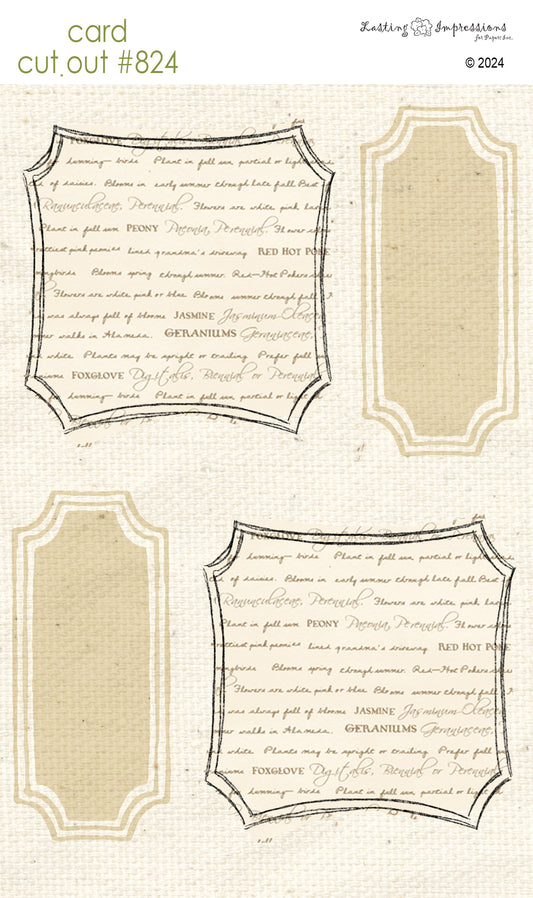 card
cut.out #824
Lasting Impressions
for Paper, Inc.
© 2024
dunning- birds Plant in full sun, partial or light
of daisies. Blooms in early summer through late fall. Best
Ranunculaceae, Perennial. Flowers are white, pink,
Plant in full sun PEONY Paeonia, Perennial. Flower
prettiest pink peonies lined grandma's driveway. RED HOT POKE
Blooms spring through summer. Red-Hot Pokers
Flowers are white, pink or blue Blooms summer through fall.
was always full of blooms JASMINE Jasminum-Oleaceae
walks in Alameda. GERANIUMS Geraniaceae,
white. Plants may be upright or trailing. Prefer full
FOXGLOVE Digitalis, Biennial or Perennial
dunning- birds Plant in full sun, partial or
dunning- birds Plant in full sun, partial or light
of daisies. Blooms in early summer through late fall. Best
Ranunculaceae, Perennial. Flowers are white, pink,
Plant in full sun PEONY Paeonia, Perennial. Flower
prettiest pink peonies lined grandma's driveway. RED HOT POKE
Blooms spring through summer. Red-Hot Pokers
Flowers are white, pink or blue Blooms summer through fall.
was always full of blooms JASMINE Jasminum-Oleaceae
walks in Alameda. GERANIUMS Geraniaceae,
white. Plants may be upright or trailing. Prefer full
FOXGLOVE Digitalis, Biennial or Perennial
dunning- birds Plant in full sun, partial or light